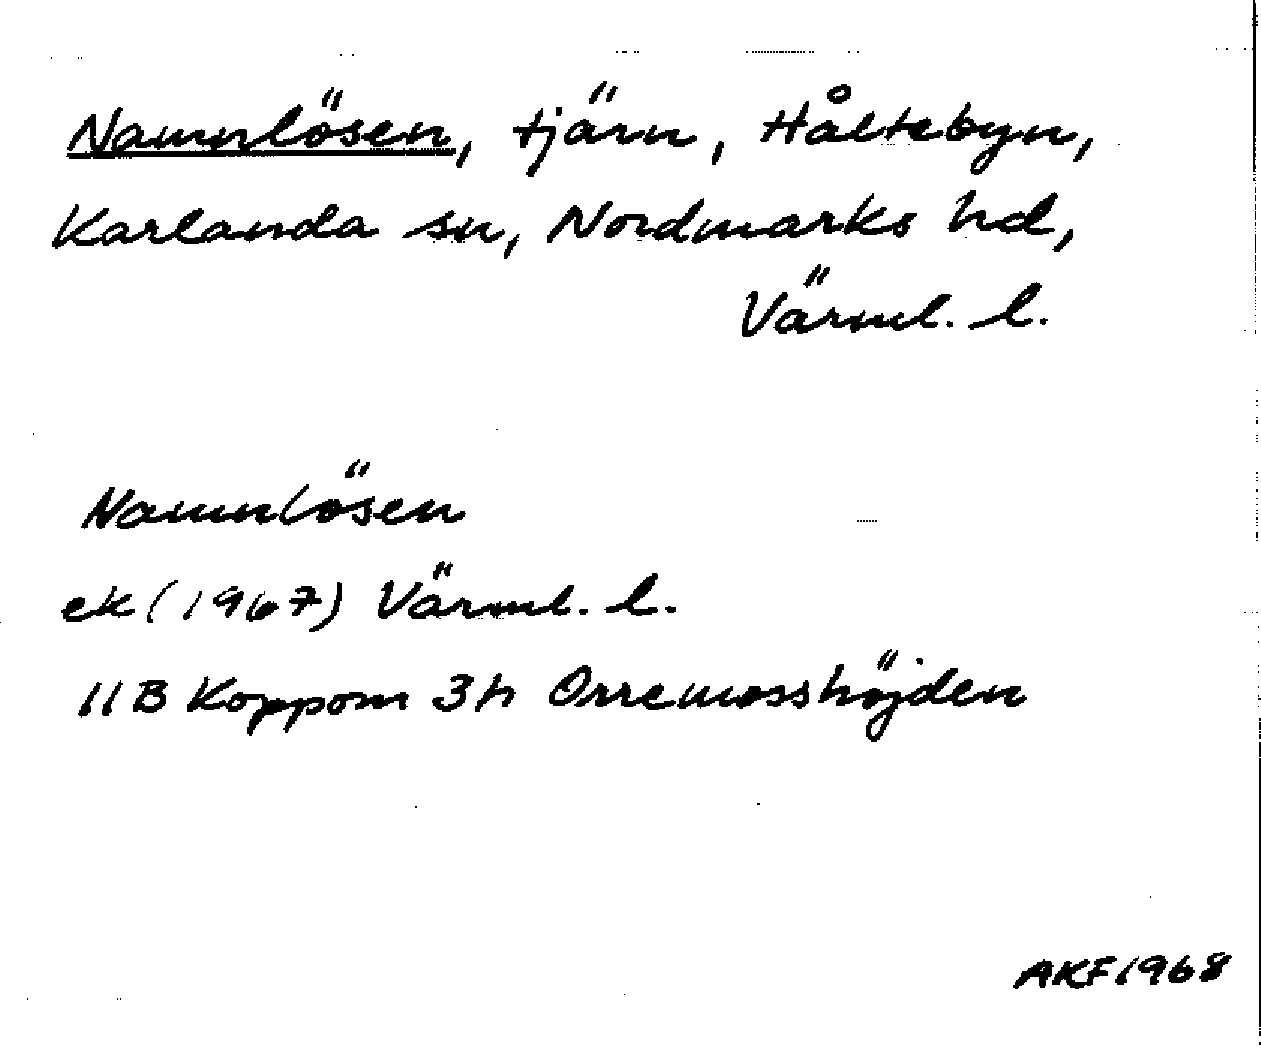 Namnlösen, tjärn, Håltebyn,
Karlanda sn, Nordmarks hd,
Värml. l.
Namnlösen
ek (1967) Värml. l.
11B Koppom 3h Orremosshöjden
AKF 1968